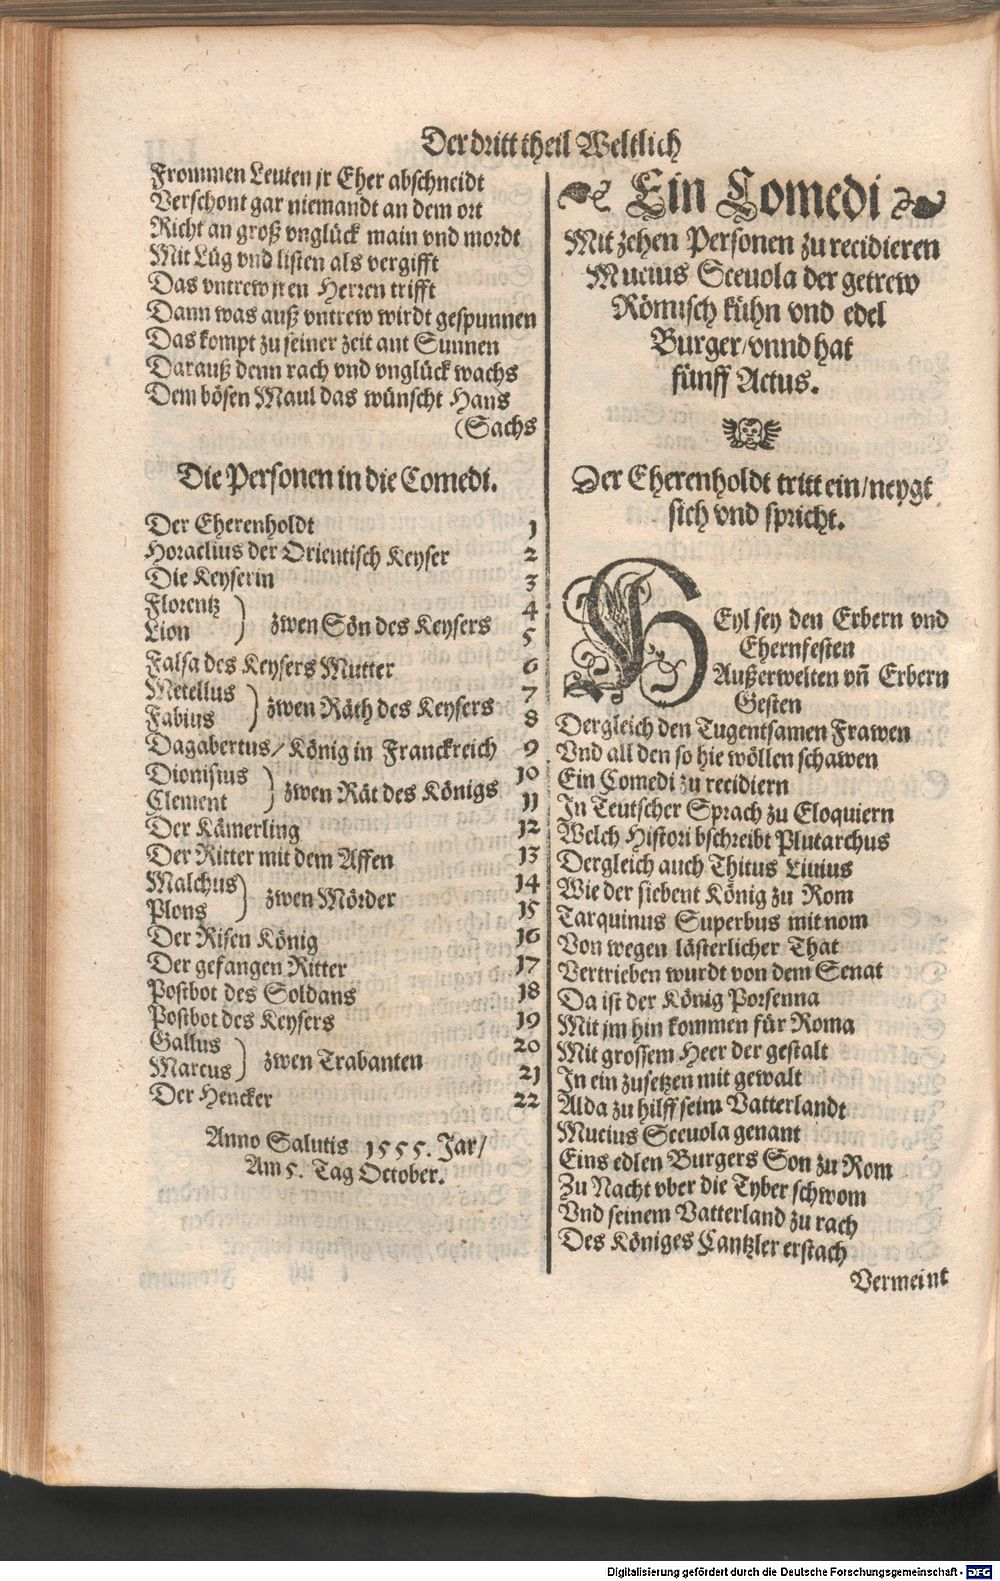 Der dritt theil Weltlich
Frommen Leuten jr Eher abschneidt
Verschont gar niemandt an dem ort
Richt an groß vnglück main vnd mordt
Mit Lüg vnd listen als vergifft
Das vntrew jren Herren trifft
Dann was auß vntrew wirdt gespunnen
Das kompt zu seiner zeit ant Sunnen
Darauß denn rach vnd vnglück wachs
Dem bösen Maul das wünscht Hans
(Sachs
Die Personen in die Comedi.
Der Eherenholdt 1
Horaclius der Orientisch Keyser 2
Die Keyserin 3
Florentz 4
Lion ) zwen Sön des Keysers 5
Falsa des Keysers Mutter 6
Metellus 7
Fabius ) zwen Räth des Keysers 8
Dagabertus/ König in Franckreich 9
Dionisius 10
Clement ) zwen Rät des Königs 11
Der Kämerling 12
Der Ritter mit dem Affen 13
Malchus 14
Plons ) zwen Mörder 15
Der Risen König 16
Der gefangen Ritter 17
Postbot des Soldans 18
Postbot des Keysers 19
Gallus 20
Marcus ) zwen Trabanten 21
Der Hencker 22
Anno Salutis 1555. Jar/
Am 5. Tag October.
Ein Comedi
Mit zehen Personen zu recidieren
Mucius Sceuola der getrew
Römisch kühn vnd edel
Burger/vnnd hat
fünff Actus.
Der Eherenholdt tritt ein/neygt
sich vnd spricht.
HEyl sey den Erbern vnd
Ehernfesten
Außerwelten vñ Erbern
Gesten
Dergleich den Tugentsamen Frawen
Vnd all den so hie wöllen schawen
Ein Comedi zu recidiern
In Teutscher Sprach zu Eloquiern
Welch Histori bschreibt Plutarchus
Dergleich auch Thitus Liuius
Wie der siebent König zu Rom
Tarquinus Superbus mit nom
Von wegen lästerlicher That
Vertrieben wurdt von dem Senat
Da ist der König Porsenna
Mit jm hin kommen für Roma
Mit grossem Heer der gestalt
In ein zusetzen mit gewalt
Alda zu hilff seim Vatterlandt
Mucius Sceuola genant
Eins edlen Burgers Son zu Rom
Zu Nacht vber die Tyber schwom
Vnd seinem Vatterland zu rach
Des Königes Cantzler erstach
Vermeint
Digitalisierung gefördert durch die Deutsche Forschungsgemeinschaft - DFG